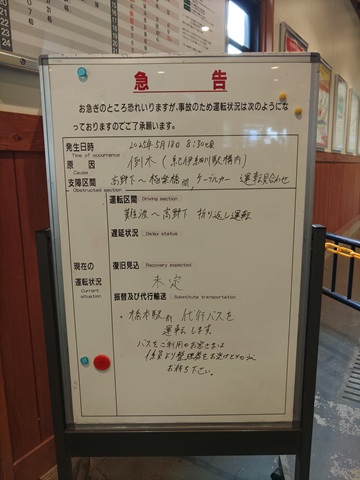 急告
お急ぎのところ恐れいりますが、事故のため運転状況は次のようになっておりますのでご了承願います。
発生日時
Time of occurrence
2025年5月18日 8:30頃
原因
Cause
倒木(紀伊細川駅構内)
支障区間
Obstructed section
高野下〜極楽橋間, ケーブルカー 運転見合わせ
運転区間 Driving section
難波〜高野下 折り返し運転
遅延状況 Delay status
現在の運転状況
Current situation
復旧見込 Recovery expected
未定
振替及び代行輸送 Substitute transportation
・橋本駅前 代行バスを
運転します。
バスをご利用のお客さまは
係員より整理券をお受けとりの
お待ち下さい。